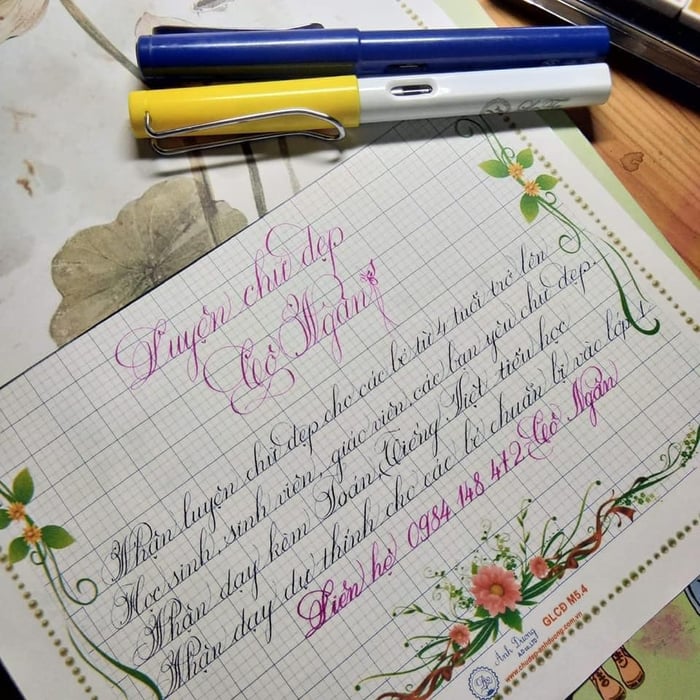 Luyện chữ đẹp
Cô Ngân
Nhận luyện chữ đẹp cho các bé từ 4 tuổi trở lên
Học sinh, sinh viên, giáo viên, các bạn yêu chữ đẹp.
Nhận dạy kèm Toán, Tiếng Việt tiểu học
Nhận dạy dự thính cho các bé chuẩn bị vào lớp 1
Liên hệ 0984 148 412 Cô Ngân
Anh Dương
GLCĐ M5.4
www.chudep-anhduong.com.vn